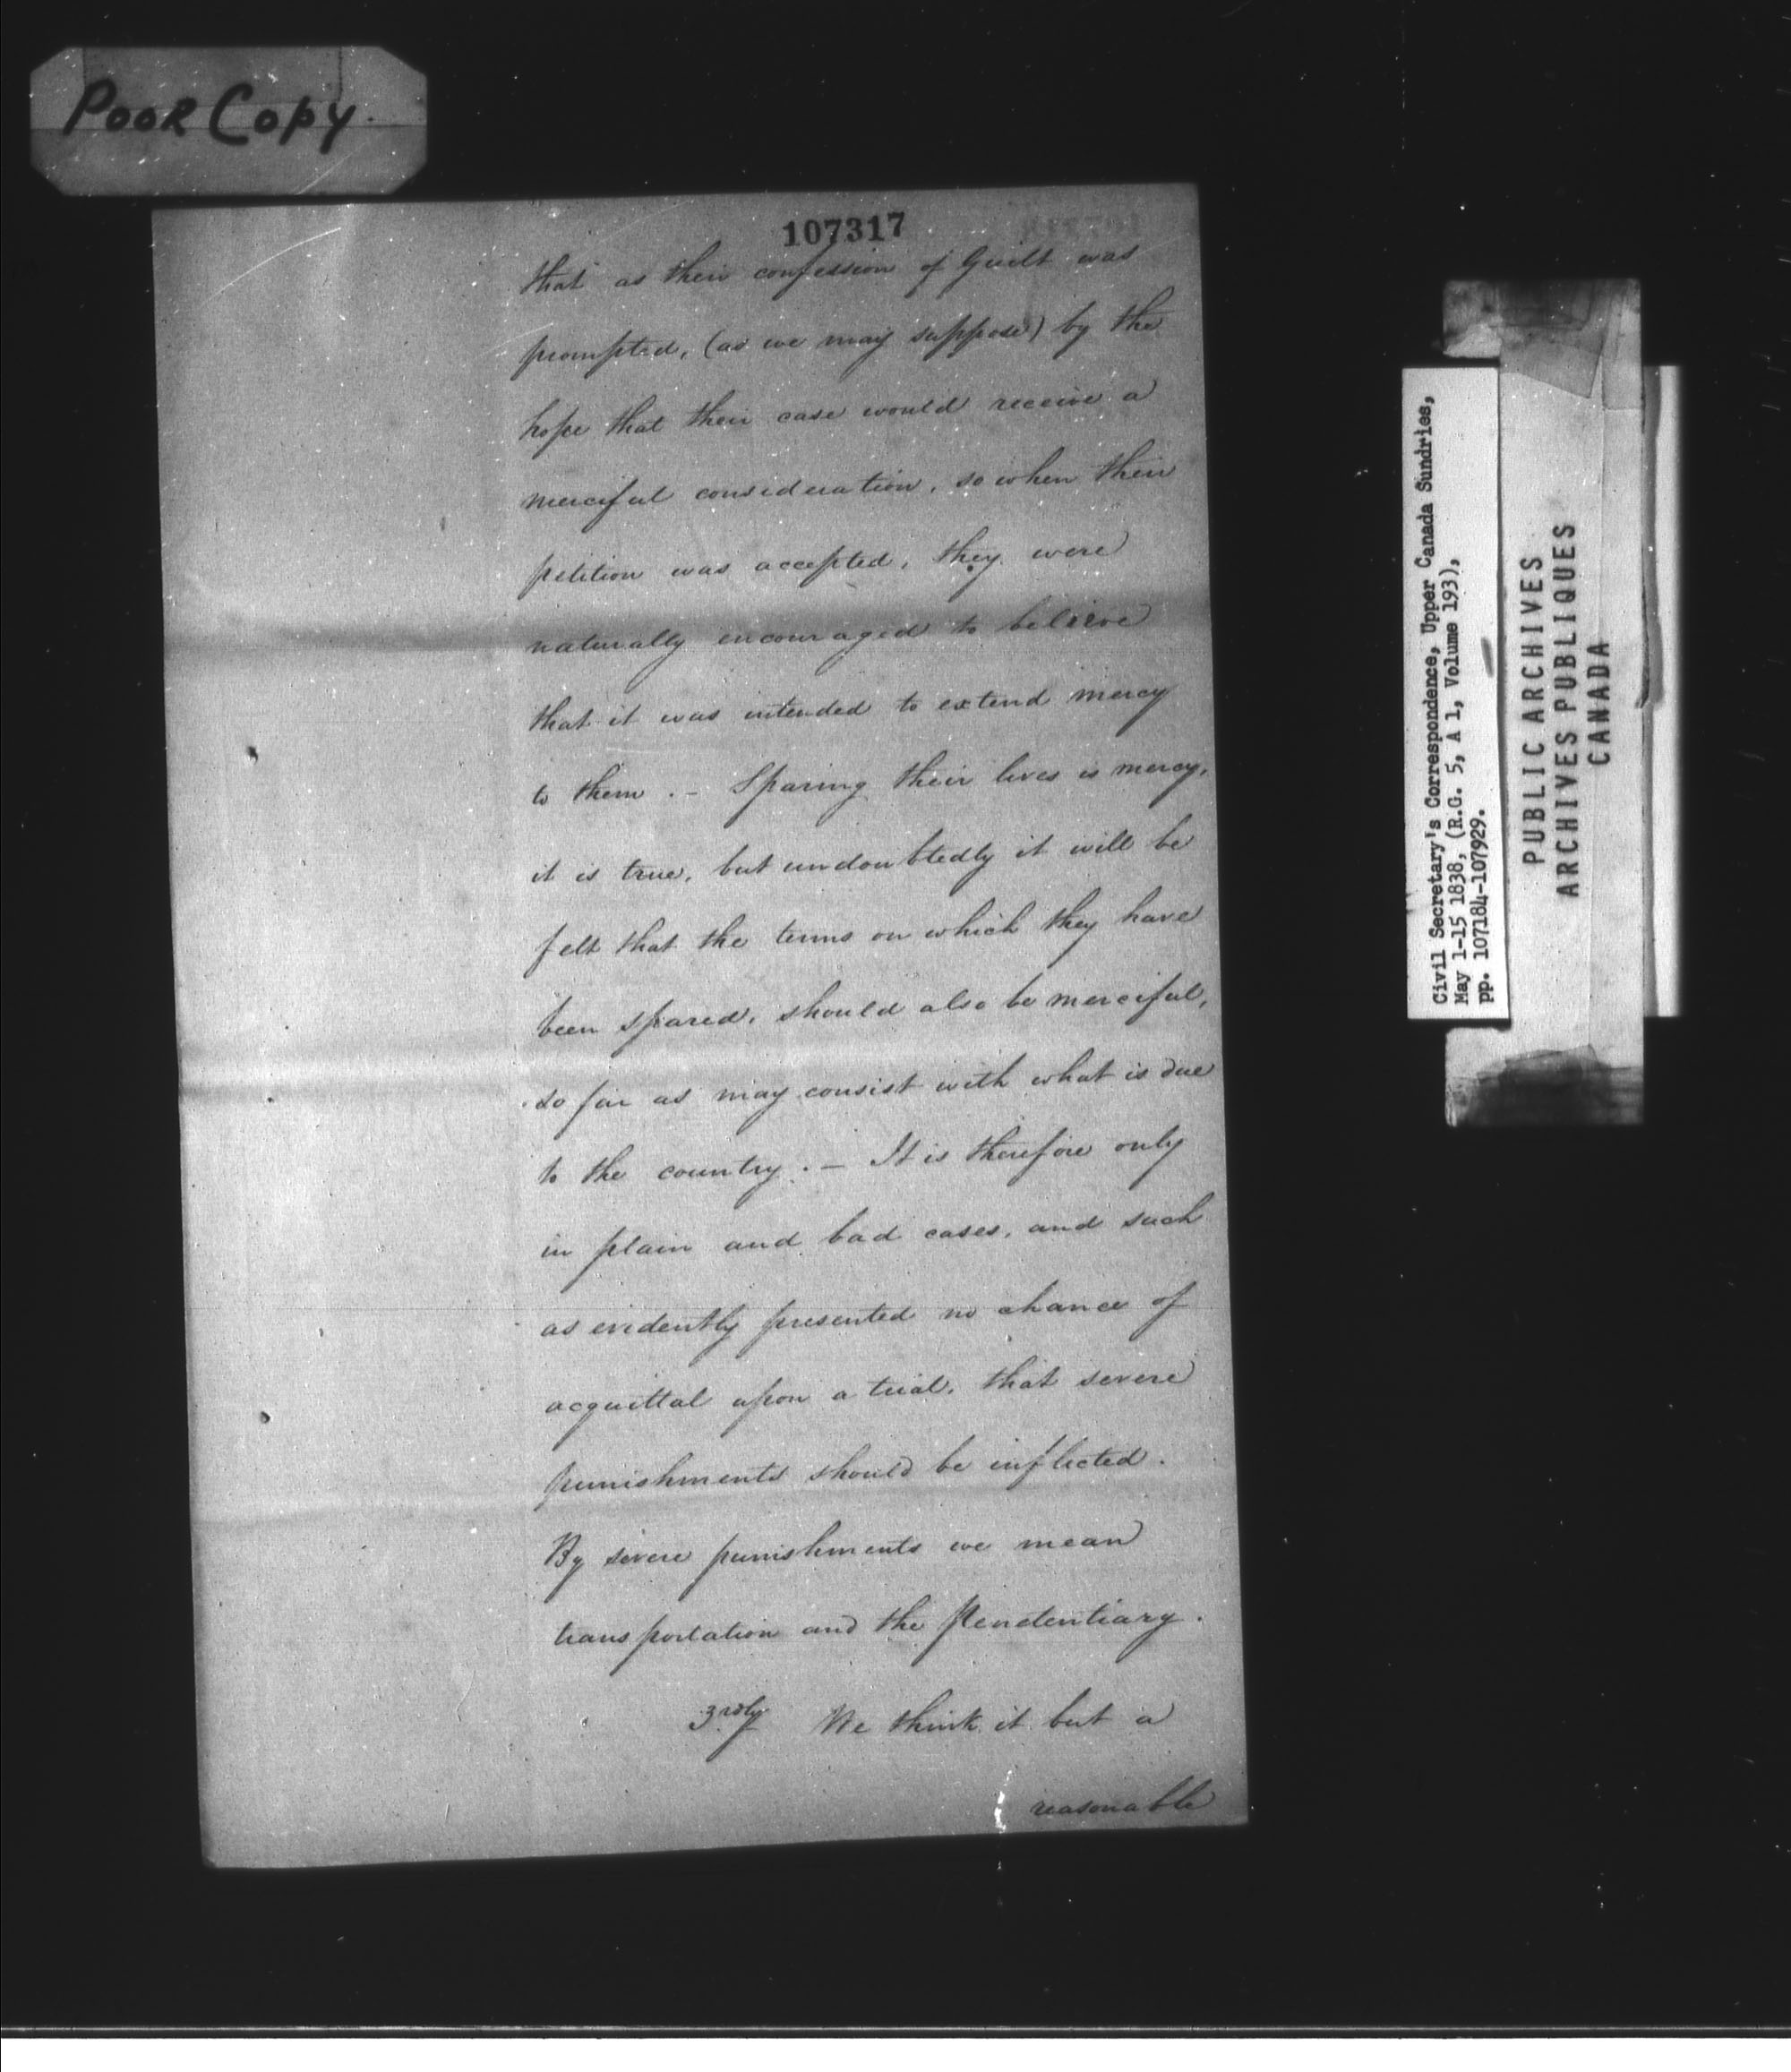 POOR COPY.
107317
that as their confession of Guilt was
prompted, (as we may suppose) by the
hope that their case would receive a
merciful consideration, so when their
petition was accepted, they were
naturally encouraged to believe
that it was intended to extend mercy
to them . – Sparing their lives is mercy,
it is true, but undoubtedly it will be
felt that the terms on which they have
been spared, should also be merciful,
so far as may consist with what is due
to the country . – It is therefore only
in plain and bad cases, and such
as evidently presented no chance of
acquittal upon a trial, that severe
punishments should be inflicted.
By severe punishments we mean
transportation and the Penetentiary.
3rdly We think it but a
reasonable
Civil Secretary's Correspondence, Upper Canada Sundries,
May 1-15 1838, (R.G. 5, A 1, Volume 193),
pp. 107184-107929.
PUBLIC ARCHIVES
ARCHIVES PUBLIQUES
CANADA